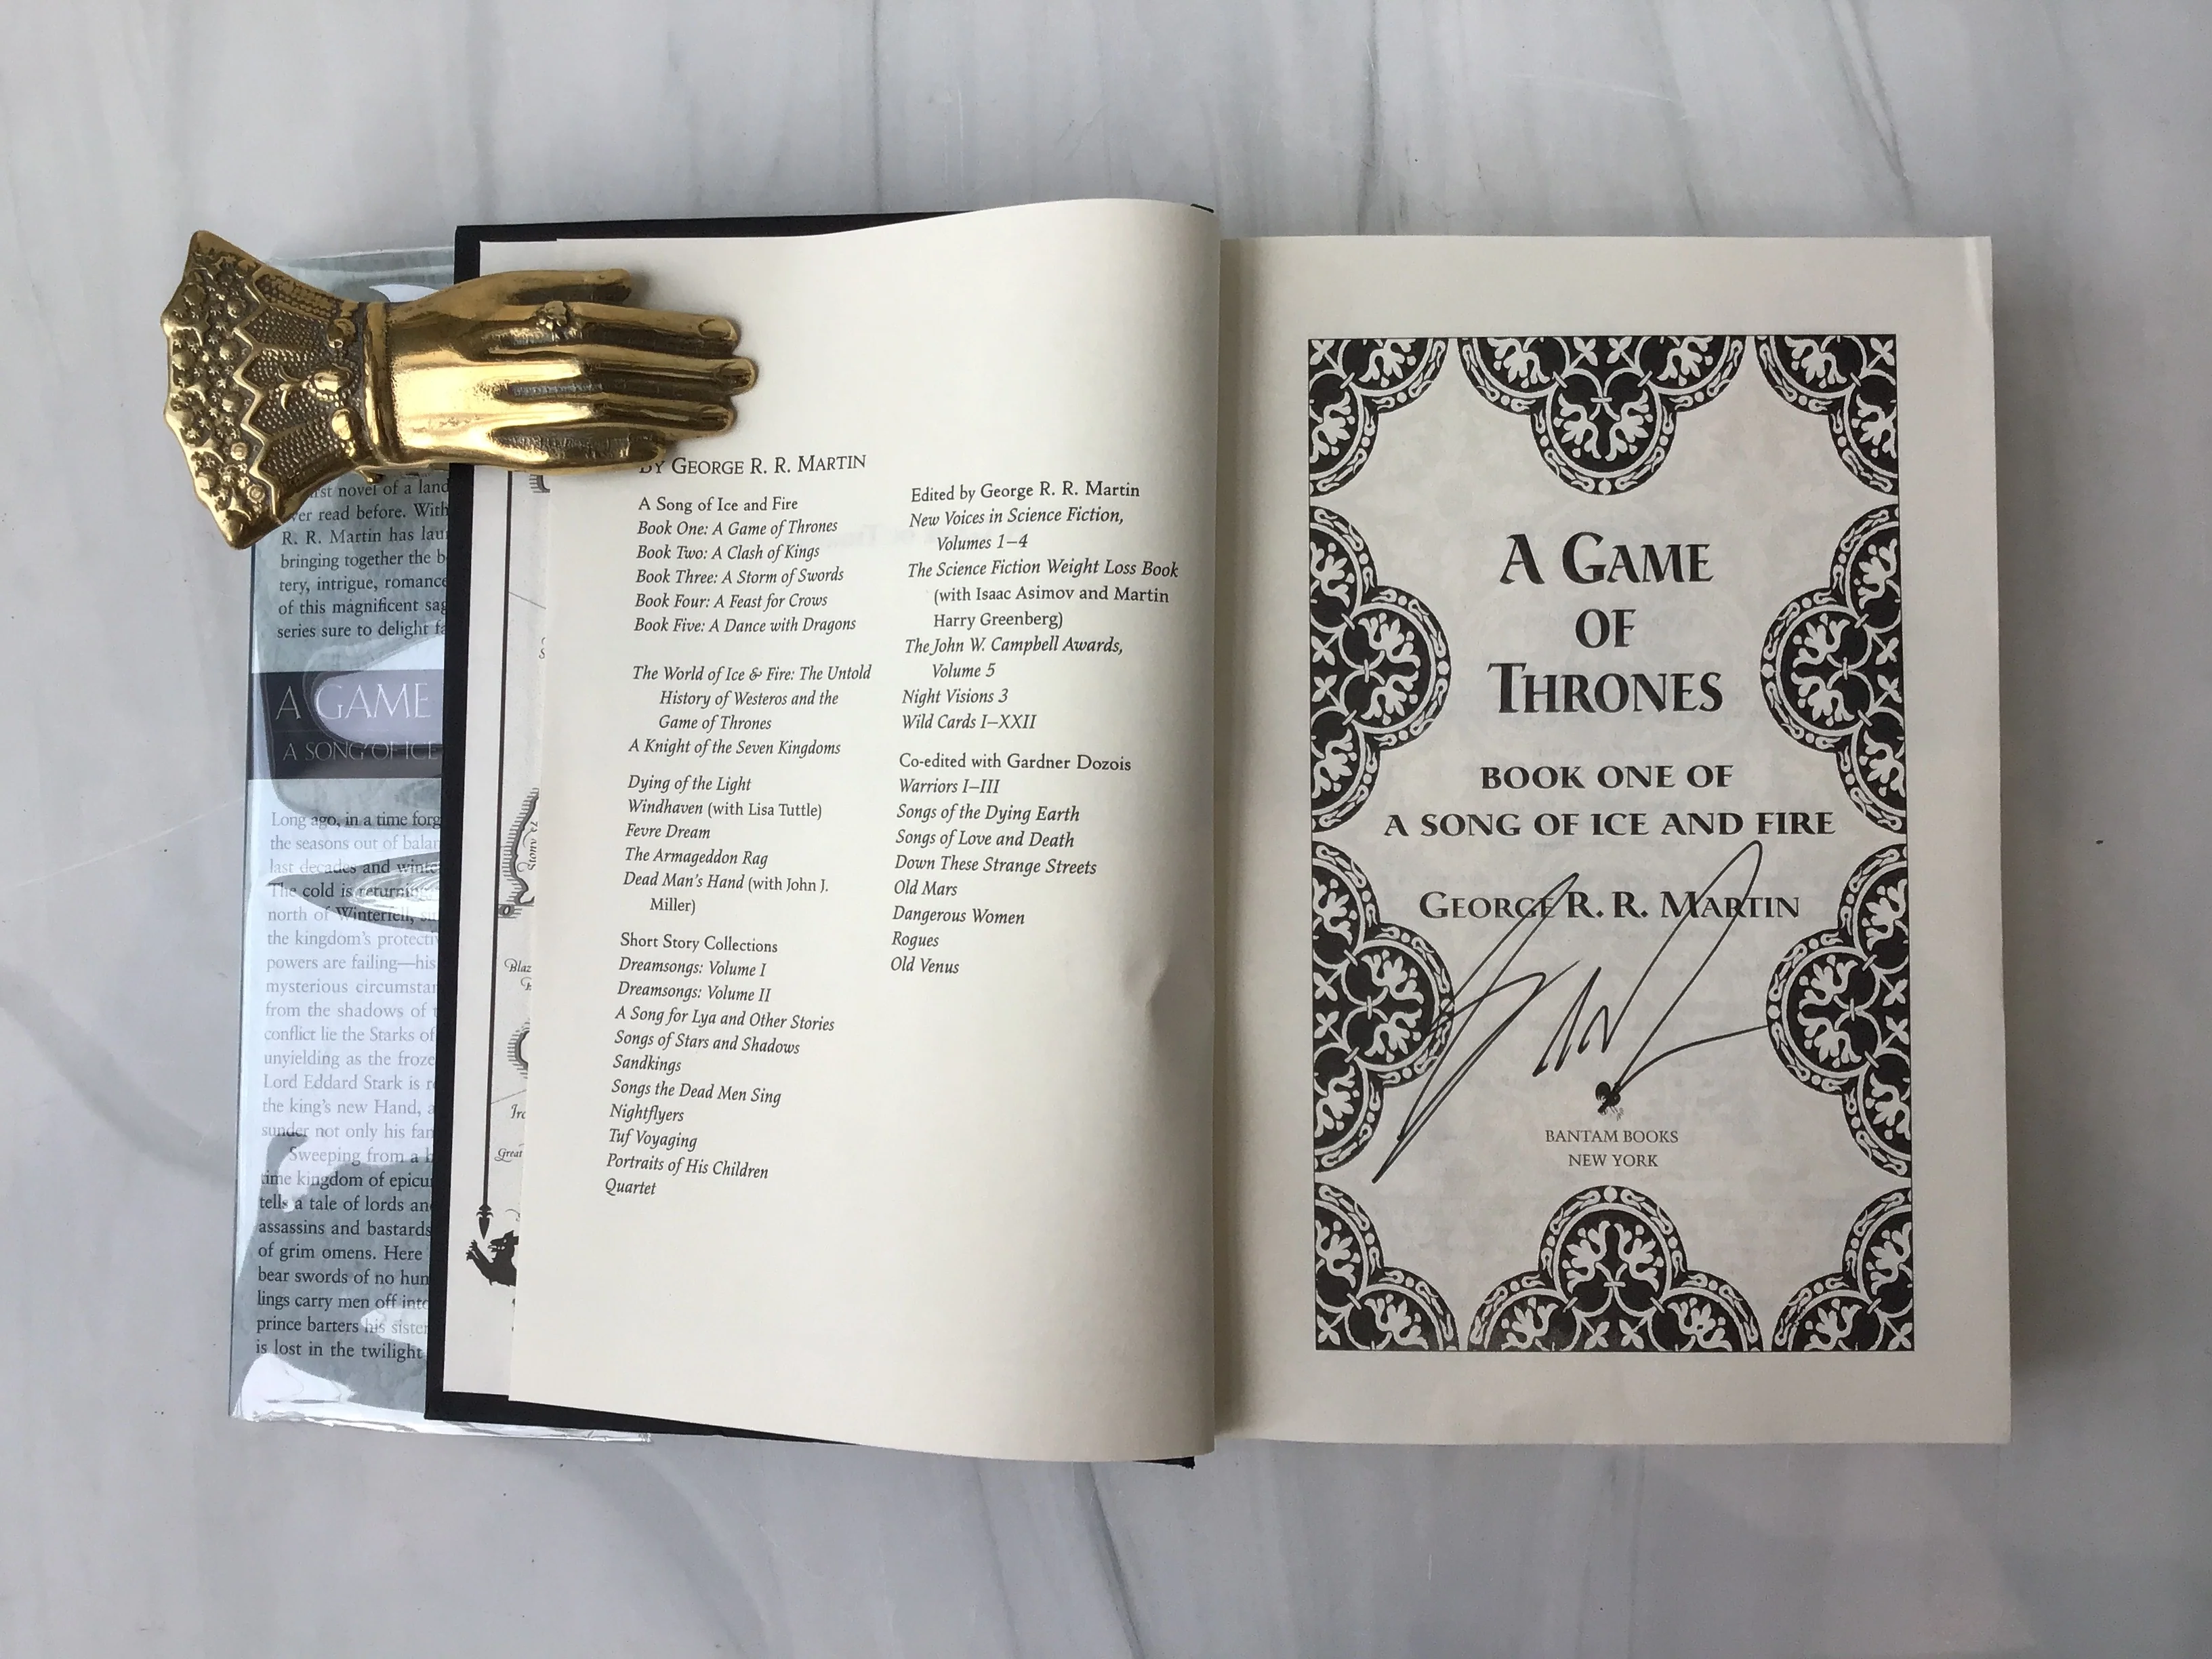 rst novel of a land
ver read before. With
R. R. Martin has lau
bringing together the b
tery, intrigue, romance
of this magnificent sag
series sure to delight fa
A GAME
A SONG OF ICE
Long ago, in a time forg
the seasons out of balan
last decades and winte
The cold is returning,
north of Winterfell,
the kingdom's protecti
powers are failing—his
mysterious circumstan
from the shadows of
conflict lie the Starks of
unyielding as the froze
Lord Eddard Stark is r
the king's new Hand, a
sunder not only his fam
Sweeping from a
time kingdom of epicu
tells a tale of lords an
assassins and bastards
of grim omens. Here
bear swords of no hum
lings carry men off into
prince barters his sister
is lost in the twilight
Blaz
Iro
Great
BY GEORGE R. R. MARTIN
A Song of Ice and Fire
Book One: A Game of Thrones
Book Two: A Clash of Kings
Book Three: A Storm of Swords
Book Four: A Feast for Crows
Book Five: A Dance with Dragons
The World of Ice & Fire: The Untold
History of Westeros and the
Game of Thrones
A Knight of the Seven Kingdoms
Dying of the Light
Windhaven (with Lisa Tuttle)
Fevre Dream
The Armageddon Rag
Dead Man's Hand (with John J.
Miller)
Short Story Collections
Dreamsongs: Volume I
Dreamsongs: Volume II
A Song for Lya and Other Stories
Songs of Stars and Shadows
Sandkings
Songs the Dead Men Sing
Nightflyers
Tuf Voyaging
Portraits of His Children
Quartet
Edited by George R. R. Martin
New Voices in Science Fiction,
Volumes 1–4
The Science Fiction Weight Loss Book
(with Isaac Asimov and Martin
Harry Greenberg)
The John W. Campbell Awards,
Volume 5
Night Visions 3
Wild Cards I–XXII
Co-edited with Gardner Dozois
Warriors I–III
Songs of the Dying Earth
Songs of Love and Death
Down These Strange Streets
Old Mars
Dangerous Women
Rogues
Old Venus
A GAME
OF
THRONES
BOOK ONE OF
A SONG OF ICE AND FIRE
GEORGE R. R. MARTIN
BANTAM BOOKS
NEW YORK